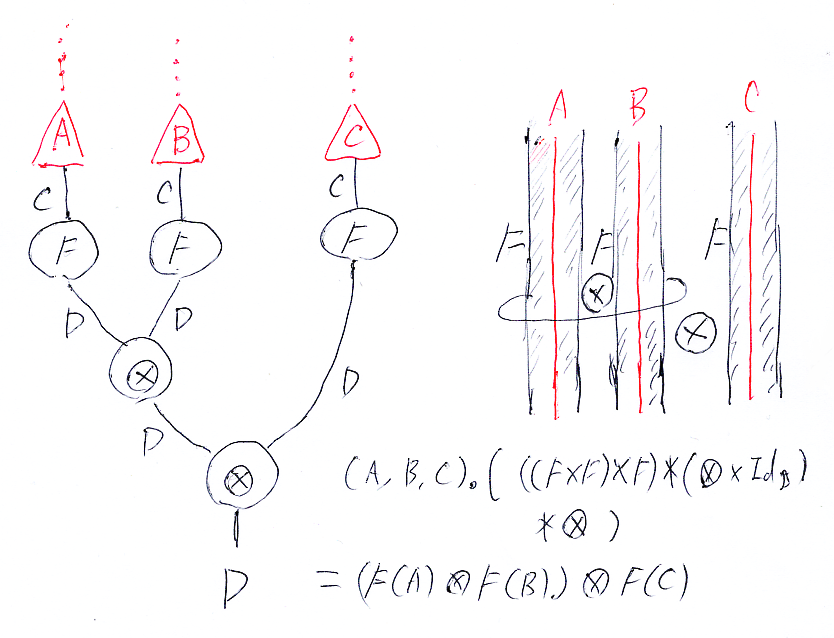 A B C
C C C
F F F
D D
⊗
D
D
⊗
D
A B C
F F F
⊗
⊗
(A, B, C).( ((F×F)×F)*(⊗×Id_D)
*⊗ )
= (F(A)⊗F(B))⊗F(C)